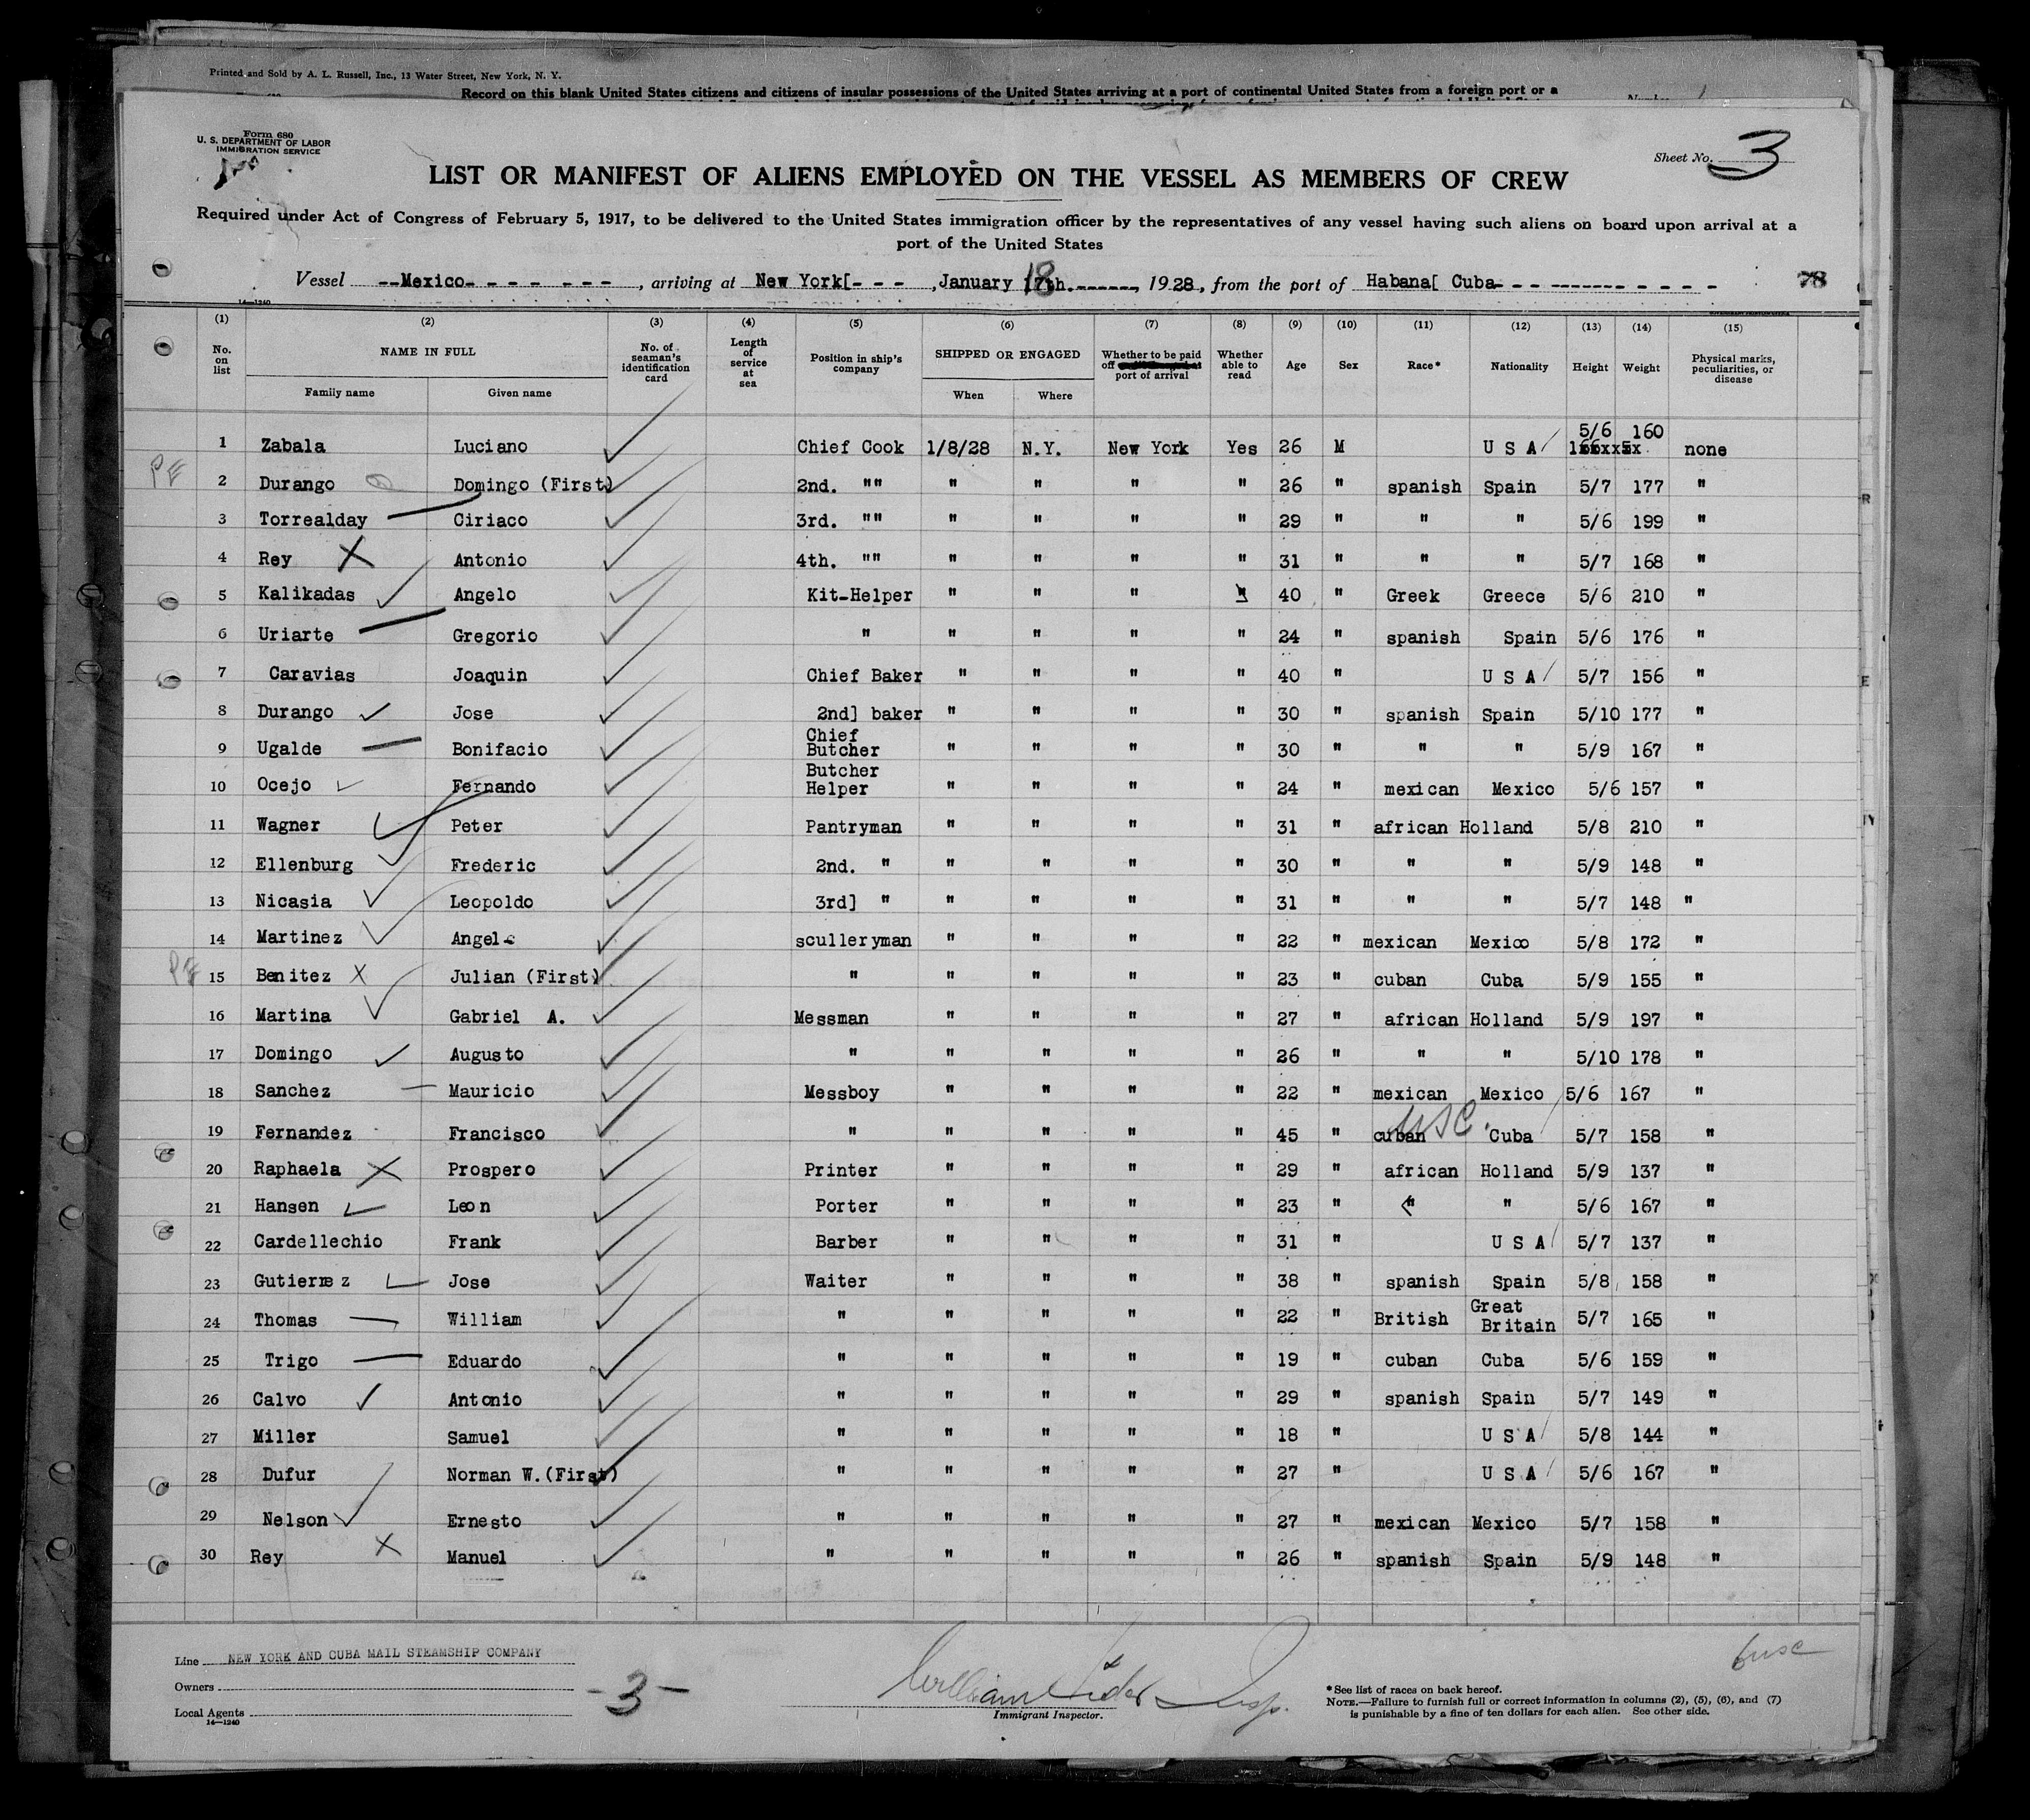 Printed and Sold by A. L. Russell, Inc., 13 Water Street, New York, N. Y.
Record on this blank United States citizens and citizens of insular possessions of the United States arriving at a port of continental United States from a foreign port or a
Form 680
U. S. DEPARTMENT OF LABOR
IMMIGRATION SERVICE
Sheet No. 3
LIST OR MANIFEST OF ALIENS EMPLOYED ON THE VESSEL AS MEMBERS OF CREW
Required under Act of Congress of February 5, 1917, to be delivered to the United States immigration officer by the representatives of any vessel having such aliens on board upon arrival at a
port of the United States
Vessel --Mexico- - - - - - - -, arriving at New York[- - - , January 17th. 18 ------, 1928, from the port of Habana[ Cuba- - - ------- - - - - - 78
14—1240
(1) (2) (3) (4) (5) (6) (7) (8) (9) (10) (11) (12) (13) (14) (15)
No. on list NAME IN FULL No. of seaman's identification card Length of service at sea Position in ship's company SHIPPED OR ENGAGED Whether to be paid off port of arrival Whether able to read Age Sex Race* Nationality Height Weight Physical marks, peculiarities, or disease
Family name Given name When Where
5/6 160
1 Zabala Luciano Chief Cook 1/8/28 N.Y. New York Yes 26 M U S A none
PE 2 Durango Domingo (First) 2nd. "" " " " " 26 " spanish Spain 5/7 177 "
3 Torrealday Ciriaco 3rd. "" " " " " 29 " " " 5/6 199 "
4 Rey X Antonio 4th. "" " " " " 31 " " " 5/7 168 "
5 Kalikadas Angelo Kit-Helper " " " 40 " Greek Greece 5/6 210 "
6 Uriarte Gregorio " " " " " 24 " spanish Spain 5/6 176 "
7 Caravias Joaquin Chief Baker " " " " 40 " U S A 5/7 156 "
8 Durango Jose 2nd] baker " " " " 30 " spanish Spain 5/10 177 "
9 Ugalde Bonifacio Chief Butcher " " " " 30 " " " 5/9 167 "
10 Ocejo Fernando Butcher Helper " " " " 24 " mexican Mexico 5/6 157 "
11 Wagner Peter Pantryman " " " " 31 " african Holland 5/8 210 "
12 Ellenburg Frederic 2nd. " " " " " 30 " " " 5/9 148 "
13 Nicasia Leopoldo 3rd] " " " " " 31 " " " 5/7 148 "
14 Martinez Angel sculleryman " " " " 22 " mexican Mexico 5/8 172 "
PE 15 Benitez X Julian (First) " " " " " 23 " cuban Cuba 5/9 155 "
16 Martina Gabriel A. Messman " " " " 27 " african Holland 5/9 197 "
17 Domingo Augusto " " " " " 26 " " " 5/10 178 "
18 Sanchez Mauricio Messboy " " " " 22 " mexican Mexico 5/6 167 "
19 Fernandez Francisco " " " " " 45 " cuban USC. Cuba 5/7 158 "
20 Raphaela X Prospero Printer " " " " 29 " african Holland 5/9 137 "
21 Hansen Leon Porter " " " " 23 " " " 5/6 167 "
22 Cardellechio Frank Barber " " " " 31 " U S A 5/7 137 "
23 Gutierrez Jose Waiter " " " " 38 " spanish Spain 5/8 158 "
24 Thomas William " " " " " 22 " British Great Britain 5/7 165 "
25 Trigo Eduardo " " " " " 19 " cuban Cuba 5/6 159 "
26 Calvo Antonio " " " " " 29 " spanish Spain 5/7 149 "
27 Miller Samuel " " " " " 18 " U S A 5/8 144 "
28 Dufur Norman W.(First) " " " " " 27 " U S A 5/6 167 "
29 Nelson Ernesto " " " " " 27 " mexican Mexico 5/7 158 "
30 Rey X Manuel " " " " " 26 " spanish Spain 5/9 148 "
Line NEW YORK AND CUBA MAIL STEAMSHIP COMPANY
Owners
Local Agents
14—1240
-3-
William Insp.
Immigrant Inspector.
6usc
*See list of races on back hereof.
NOTE.—Failure to furnish full or correct information in columns (2), (5), (6), and (7)
is punishable by a fine of ten dollars for each alien. See other side.